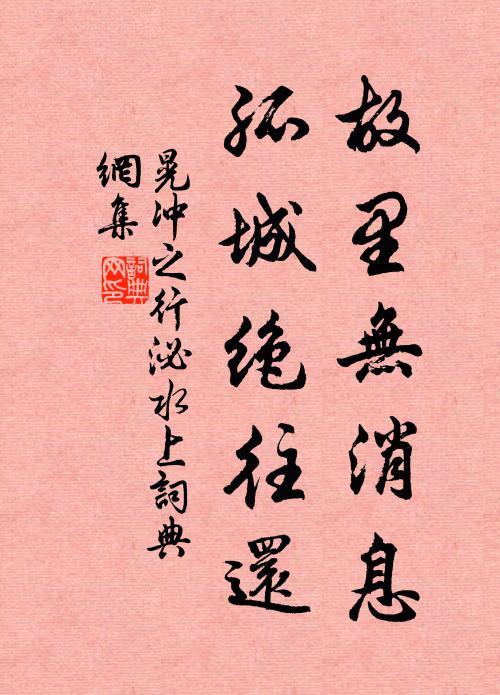 故里無消息
孤城絶往還
晁沖之行泌水上詞典
網集
詞典網印